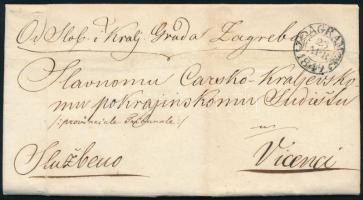 Od Slob. i Kralj. Grada Zagreba
AGRAM
Slavnomu Carsko-Kraljevsko-
mu pokrajinskomu Sudištu
/: provinciale Tribunale :/
Službeno
Vicenci